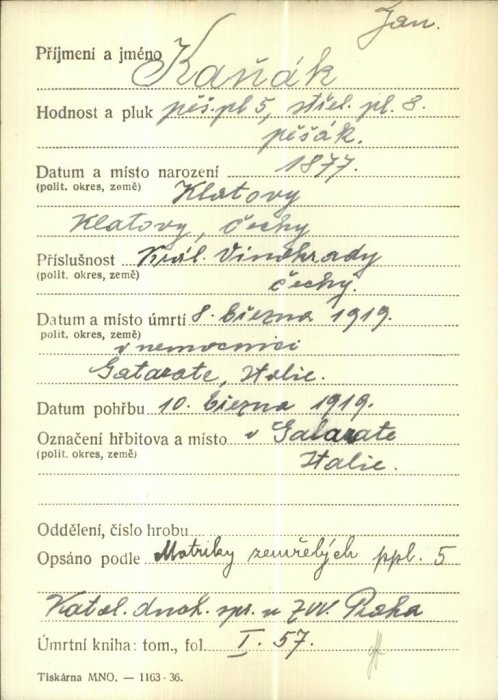 Jan.
Příjmení a jméno Kaňák
Hodnost a pluk pěš.pl 5, střel. pl. 8.
pěšák.
Datum a místo narození 1877.
(polit. okres, země) Klatovy
Klatovy, Čechy
Příslušnost Král. Vinohrady
(polit. okres, země) Čechy.
Datum a místo úmrtí 8. března 1919.
(polit. okres, země) v nemocnici
Galarate, Italie.
Datum pohřbu 10. března 1919.
Označení hřbitova a místo v Galarate
(polit. okres, země) Italie.
Oddělení, číslo hrobu
Opsáno podle Matriky zemřelých ppl. 5
Katol. duch. spr. u ZVV. Praha
Úmrtní kniha: tom., fol. I. 57.
Tiskárna MNO. — 1163-36.